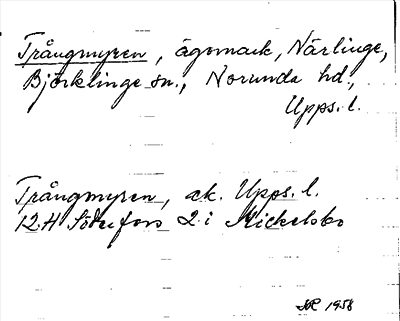 Trångmyren, ägomark, Närlinge,
Björklinge sn., Norunda hd.,
Upps. l.
Trångmyren, ek. Upps. l.
12 H Söderfors 2 i Mickelsbo
1958